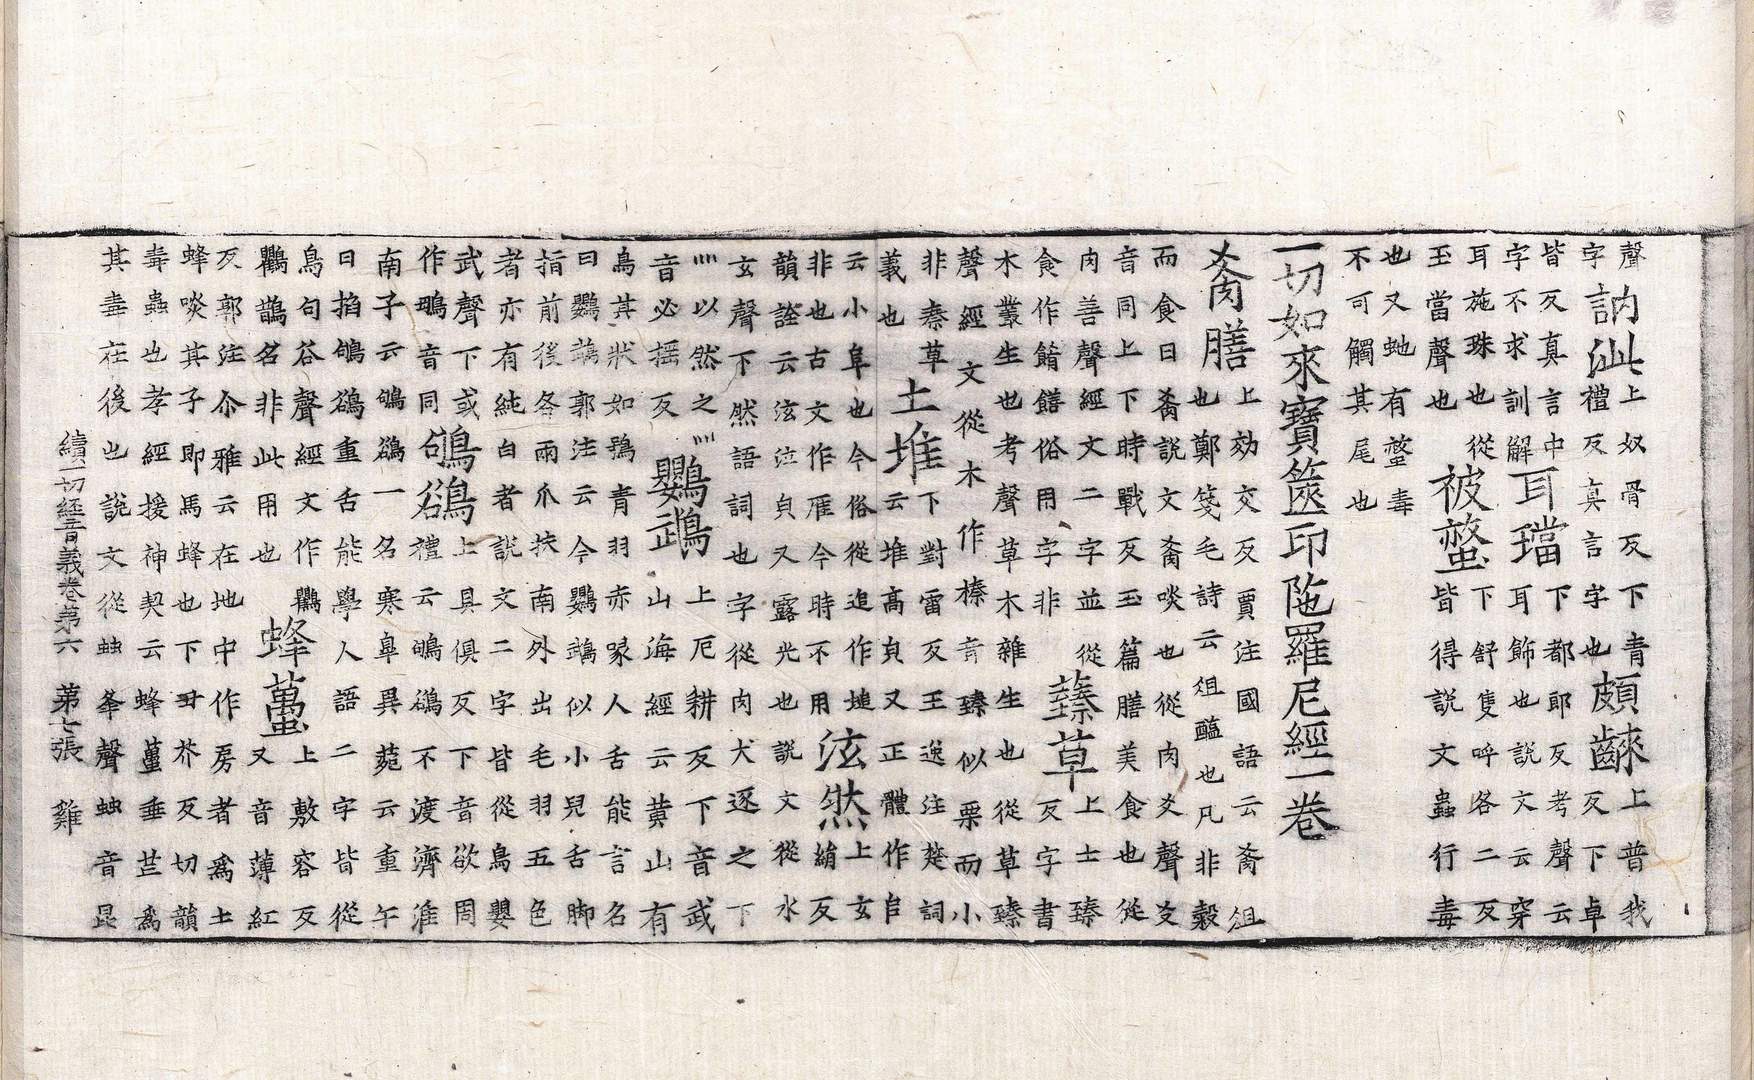 聲字 訥泚 上奴骨反下青禮反真言字也 頗𪘨 上普我反下卓
皆反真言中字不求訓解 耳璫 下都郎反考聲云耳飾也說文云穿
耳施珠也從玉當聲也 被螫 下舒隻反呼各二反皆得說文蟲行毒
也又虵有螫毒不可觸其尾也
一切如來寶篋印陁羅尼經一卷
肴膳 上効交反賈注國語云肴俎也鄭箋毛詩云俎醢也凡非穀
而食曰肴說文肴啖也從肉爻聲爻音同上下時戰反玉篇膳美食也從
肉善聲經文二字並從食作餚饍俗用字非 蓁草 上士臻反字書
木叢生也考聲草木雜生也從草臻聲經文從木作榛音臻似栗而小
非蓁草義也 土堆 下對雷反王逸注楚詞云堆高皃又正體作𠂤
云小阜也今俗從追作塠非也古文作雁今時不用 泫然 上玄絹反
韻詮云泫泣皃又露光也說文從水玄聲下然語詞也字從肉犬逐之下
灬以然之灬音必搖反 鸚䳇 上厄耕反下音武山海經云黃山有
鳥其狀如鴞青羽赤喙人舌能言名曰鸚䳇郭注云今鸚䳇似小兒舌脚
指前後各兩爪扶南外出毛羽五色者亦有純白者說文二字皆從鳥嬰
武聲下或作鵡音同 鴝鵒 上具俱反下音欲周禮云鴝鵒不渡濟淮
南子云鴝鵒一名寒皐異菀云重午日掐鴝鵒重舌能學人語二字皆從
鳥句谷聲經文作鸜鸜鵲名非此用也 蜂蠆 上敷容反又音薄紅
反郭注尒雅云在地中作房者爲土蜂啖其子即馬蜂也下丑芥反切韻
毒蟲也孝經援神契云蜂蠆垂芒爲其毒在後也說文從䖵夆聲䖵音昆
續一切經音義卷第六 第七張 雞